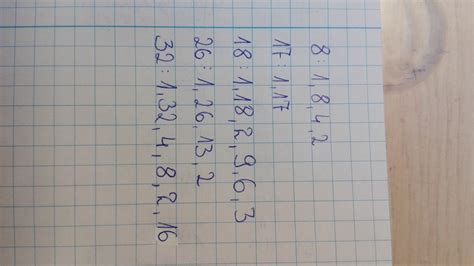 8:1,8,4,2
17:1,17
18:1,18,2,9,6,3
26:1,26,13,2
32:1,32,4,8,2,16